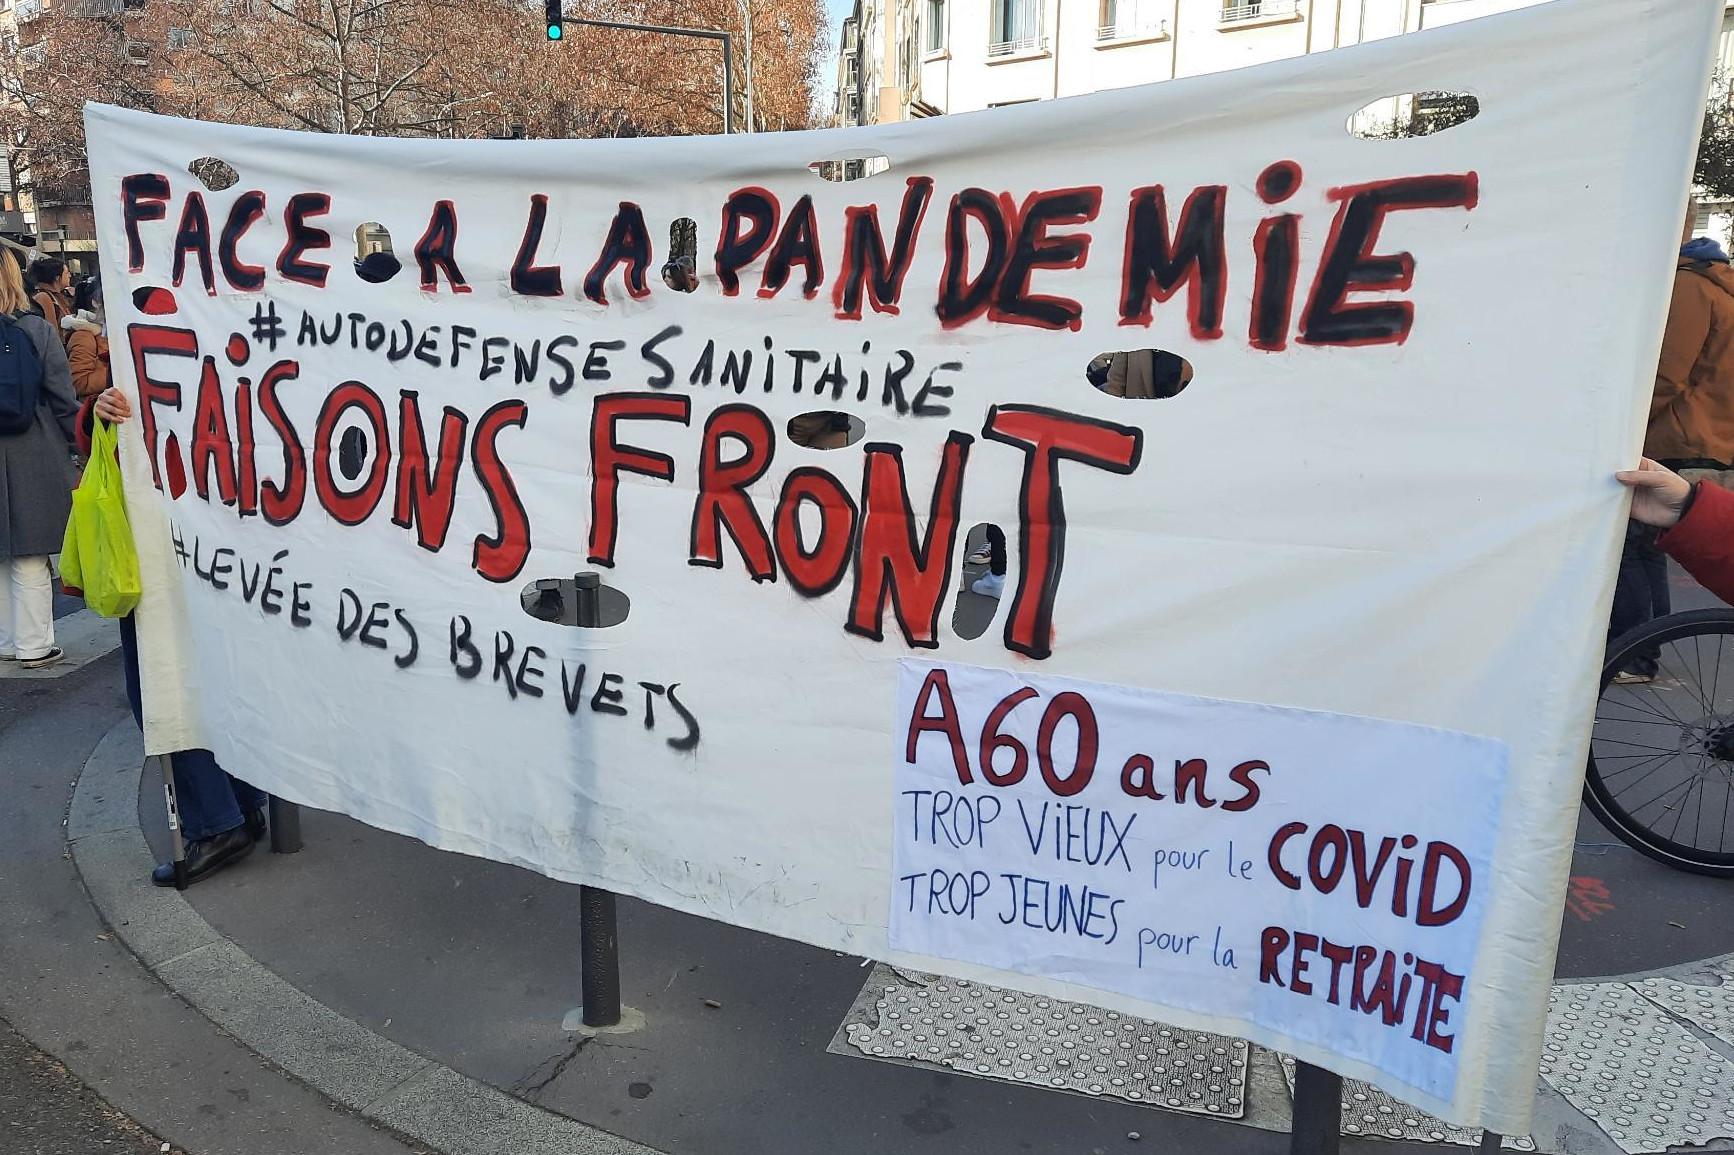 FACE A LA PANDEMiE
#AUTODEFENSE SANiTAiRE
FAiSONS FRONT
#LEVÉE DES BREVETS
A 60 ans
TROP ViEUX pour le COViD
TROP JEUNES pour la RETRAiTE